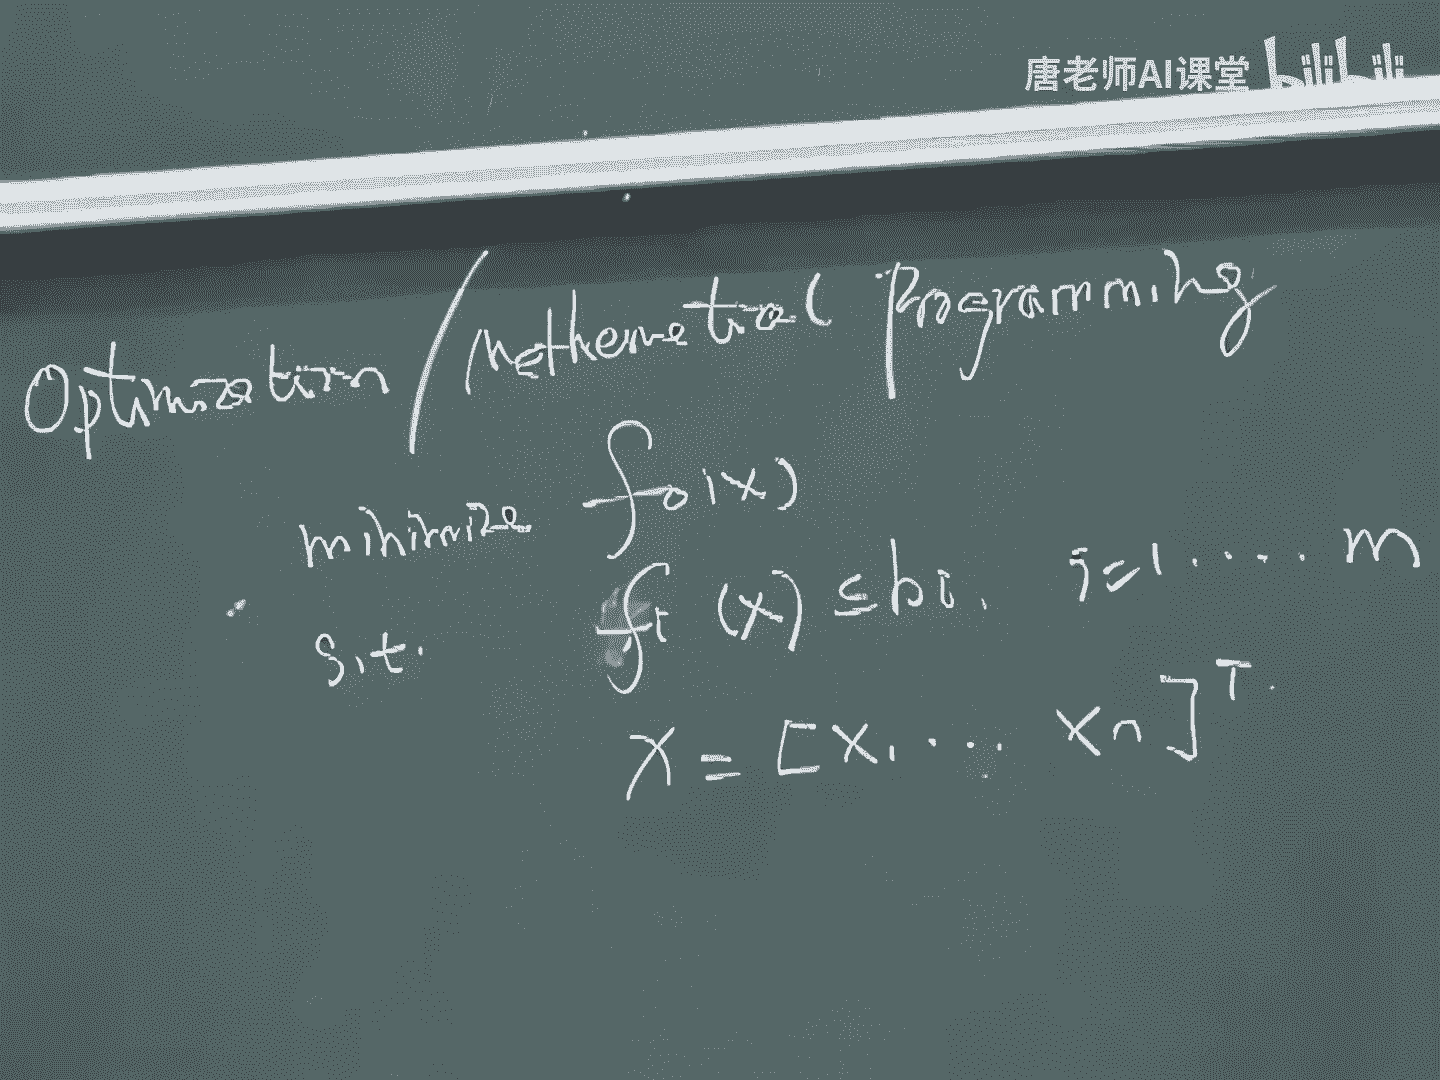 唐老师AI课堂 bilibili
Optimization / Mathematical Programming
minimize f₀(x)
s.t. fᵢ(x) ≤ bᵢ, i=1....m
x = [x₁ ... xₙ]ᵀ